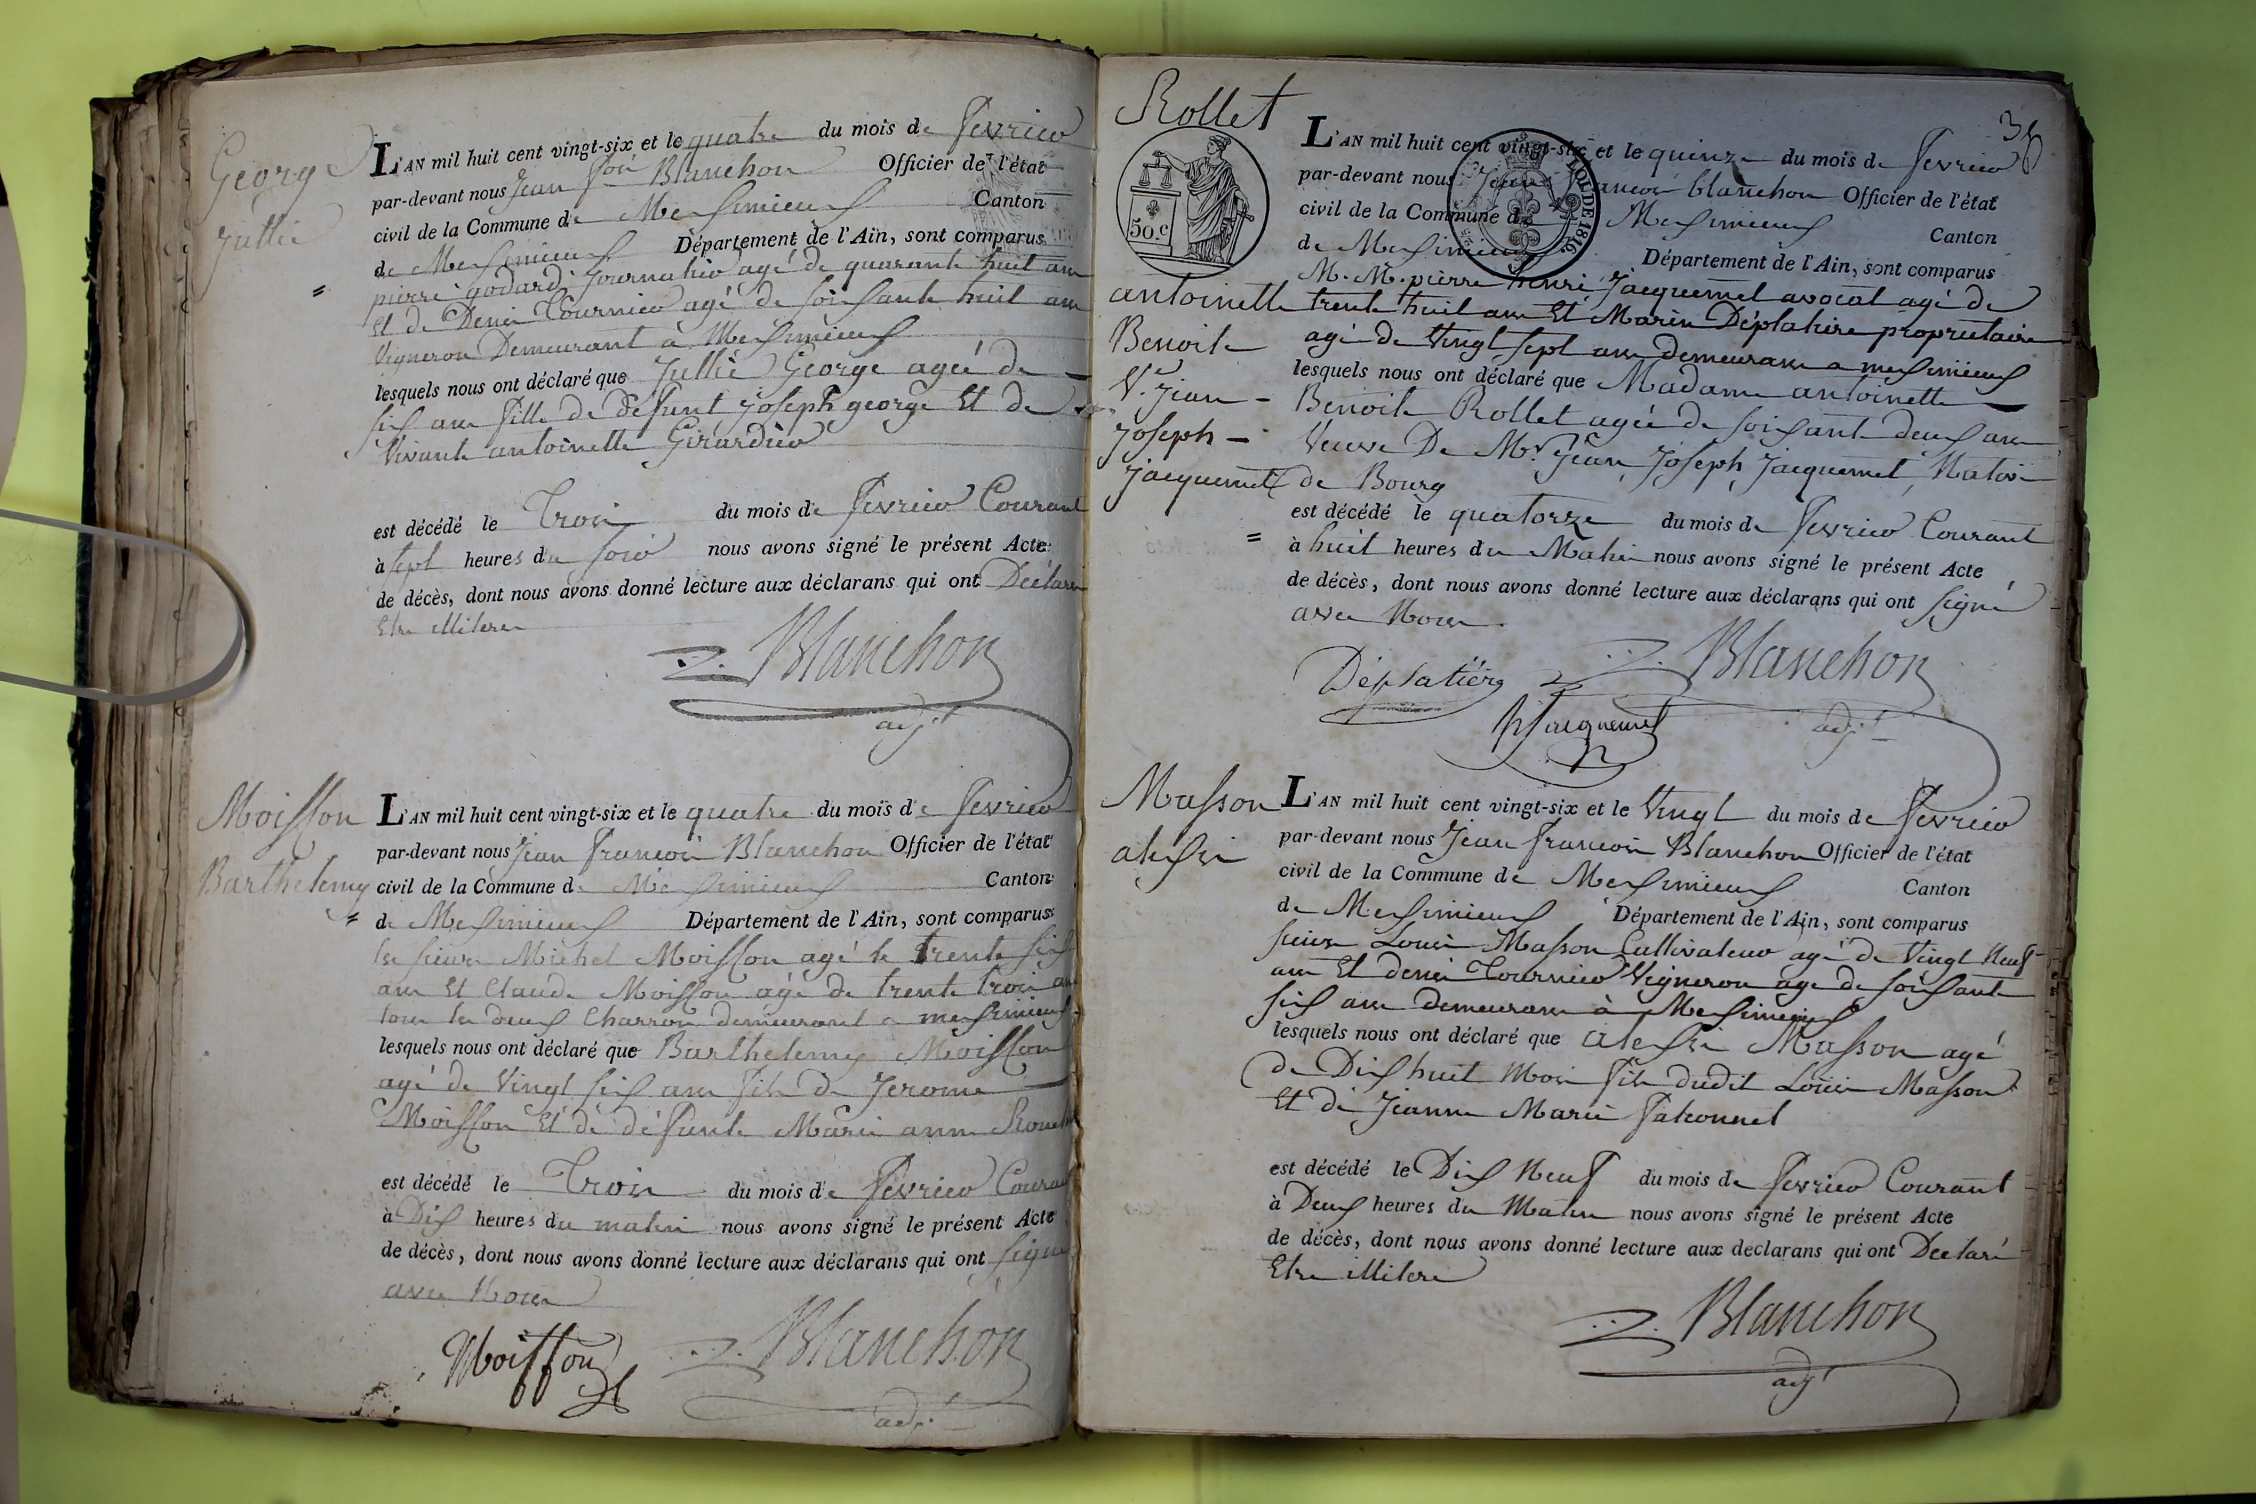 George
Jullie
=
L'AN mil huit cent vingt-six et le quatre du mois de fevrier
par-devant nous Jean fois Blanchon Officier de l'état
civil de la Commune de Messimieux Canton
de Messimieux Département de l'Ain, sont comparus
pierre godard Journalier agé de quarante huit ans
Et de Denis Tournier agé de soissante huit ans
Vigneron Demeurant à Messimieux
lesquels nous ont déclaré que Jullie George agée de
six ans fille de défunt Joseph george Et de
Vivante antoinette Girardier
est décédé le Trois du mois de fevrier Courant
à sept heures du soir nous avons signé le présent Acte
de décès, dont nous avons donné lecture aux déclarans qui ont Déclaré
Etre illitere
Blanchon
adjt
Moisson
Barthelemy
=
L'AN mil huit cent vingt-six et le quatre du mois de fevrier
par-devant nous Jean francois Blanchon Officier de l'état
civil de la Commune de Messimieux Canton
de Messimieux Département de l'Ain, sont comparus
les sieurs Michel Moisson agé de trente six
ans Et Claude Moisson agé de trente trois ans
tous les deux Charron demeurant a messimieux
lesquels nous ont déclaré que Barthelemy Moisson
agé de Vingt six ans fils de Jerome
Moisson Et de défunte Marie anne
est décédé le Trois du mois de fevrier Courant
à Dix heures du matin nous avons signé le présent Acte
de décès, dont nous avons donné lecture aux déclarans qui ont signé
avec Nous
Moisson
Blanchon
adjt
Rollet
50.c
TIM. DE 1816.
antoinette
Benoite
Ve. Jean
Joseph
Jacquemet
=
L'AN mil huit cent vingt-six et le quinze du mois de fevrier
par-devant nous Jean francois blanchon Officier de l'état
civil de la Commune de Messimieux Canton
de Messimieux Département de l'Ain, sont comparus
M. M. pierre henri Jacquemet avocat agé de
trente huit ans Et Marin Déplatiere propriétaire
agé de Vingt sept ans demeurans a messimieux
lesquels nous ont déclaré que Madame antoinette
Benoite Rollet agée de soissante deux ans
Veuve De Mr Jean Joseph Jacquemet, Native
de Bourg
est décédé le quatorze du mois de fevrier Courant
à huit heures du Matin nous avons signé le présent Acte
de décès, dont nous avons donné lecture aux déclarans qui ont signé
avec Nous
Déplatière
Blanchon
hJacquemet
adjt
Masson
alexsi
L'AN mil huit cent vingt-six et le Vingt du mois de fevrier
par-devant nous Jean francois Blanchon Officier de l'état
civil de la Commune de Messimieux Canton
de Messimieux Département de l'Ain, sont comparus
sieurs Louis Masson Cultivateur agé de Vingt Neuf
ans Et denis Tournier Vigneron age de soissante
six ans demeurans à Messimieux
lesquels nous ont déclaré que alexsi Masson agé
de Dix huit Mois fils dudit Louis Masson
Et de Jeanne Marie falconnet
est décédé le Dix Neuf du mois de fevrier Courant
à Deux heures du Matin nous avons signé le présent Acte
de décès, dont nous avons donné lecture aux declarans qui ont Declaré
Etre illitere
Blanchon
adjt